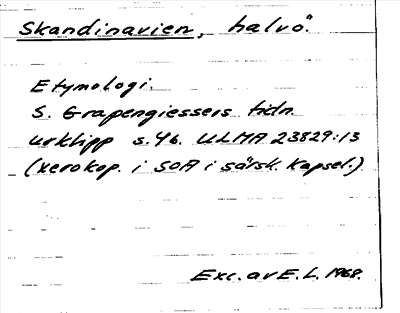 Skandinavien, halvö.
Etymologi.
S. Grapengiessers tidn.
urklipp s. 46. ULMA 23829:13
(xerokop. i SOA i särsk. kapsel.)
Exc. av E. L. 1968.